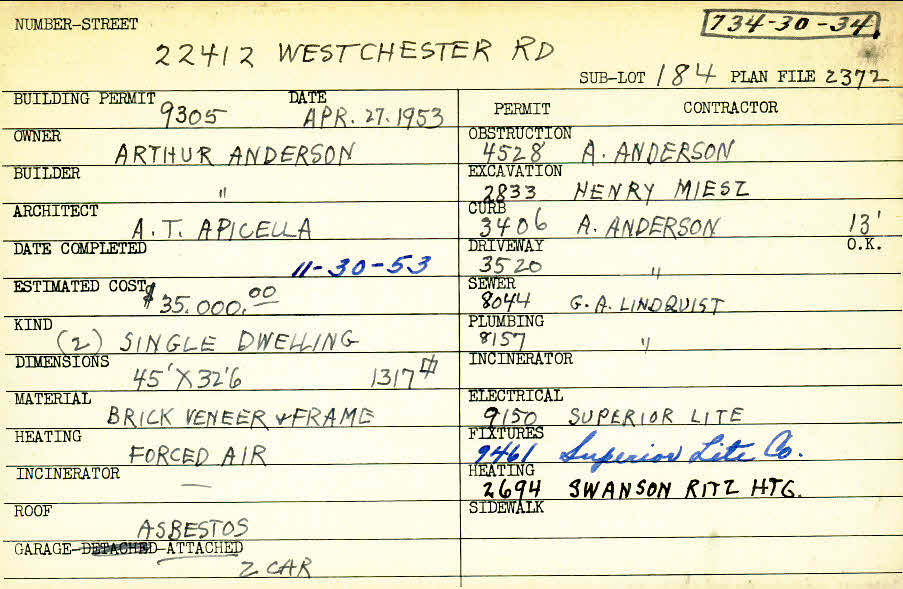 NUMBER-STREET
734-30-34
22412 WESTCHESTER RD
SUB-LOT 184 PLAN FILE 2372
BUILDING PERMIT DATE
9305 APR. 27. 1953
OWNER
ARTHUR ANDERSON
BUILDER
"
ARCHITECT
A. T. APICELLA
DATE COMPLETED
11-30-53
ESTIMATED COST
$35.000.00
KIND
(2) SINGLE DWELLING
DIMENSIONS
45' X 32'6 1317
MATERIAL
BRICK VENEER + FRAME
HEATING
FORCED AIR
INCINERATOR
—
ROOF
ASBESTOS
GARAGE-DETACHED-ATTACHED
2 CAR
PERMIT CONTRACTOR
OBSTRUCTION
4528 A. ANDERSON
EXCAVATION
2833 HENRY MIESZ
CURB
3406 A. ANDERSON 13'
O.K.
DRIVEWAY
3520 "
SEWER
8044 G. A. LINDQUIST
PLUMBING
8157 "
INCINERATOR
ELECTRICAL
9150 SUPERIOR LITE
FIXTURES
9461 Superior Lite Co.
HEATING
2694 SWANSON RITZ HTG.
SIDEWALK